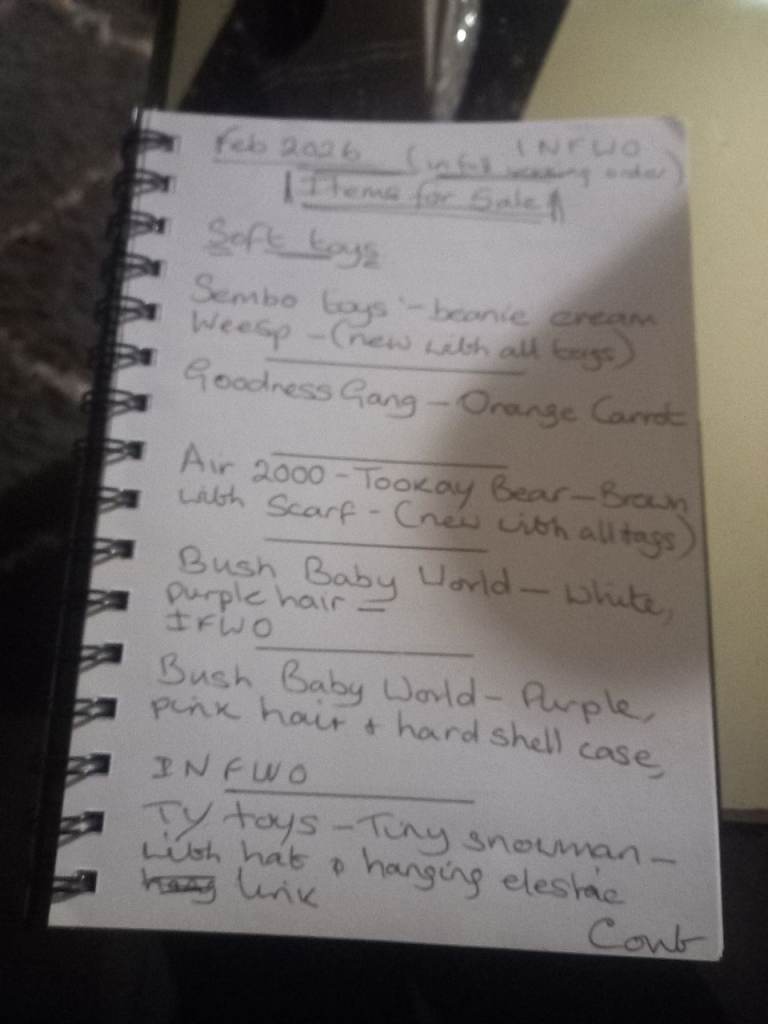 Feb 2026 INFWO
(in full working order)
Items for Sale
Soft toys
Sembo toys - beanie cream
Weesp - (new with all tags)
Goodness Gang - Orange Carrot
Air 2000 - Tookay Bear - Brown
with Scarf - (new with all tags)
Bush Baby World - White,
purple hair =
IFWO
Bush Baby World - Purple,
pink hair + hard shell case,
INFWO
TY toys - Tiny snowman -
with hat & hanging elestric
link
Cont